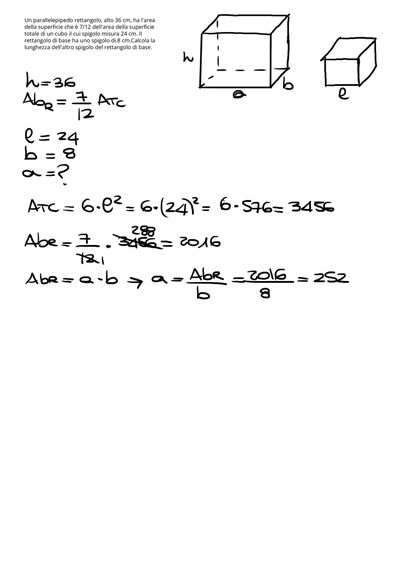 Un parallelepipedo rettangolo, alto 36 cm, ha l'area
della superficie che è 7/12 dell'area della superficie
totale di un cubo il cui spigolo misura 24 cm. Il
rettangolo di base ha uno spigolo di 8 cm.Calcola la
lunghezza dell'altro spigolo del rettangolo di base.
h
b
a
l
h = 36
AbR = 7/12 ATC
l = 24
b = 8
a = ?
ATC = 6·l² = 6·(24)² = 6·576 = 3456
AbR = 7/12 1 · 3456 288 = 2016
AbR = a·b → a = AbR/b = 2016/8 = 252